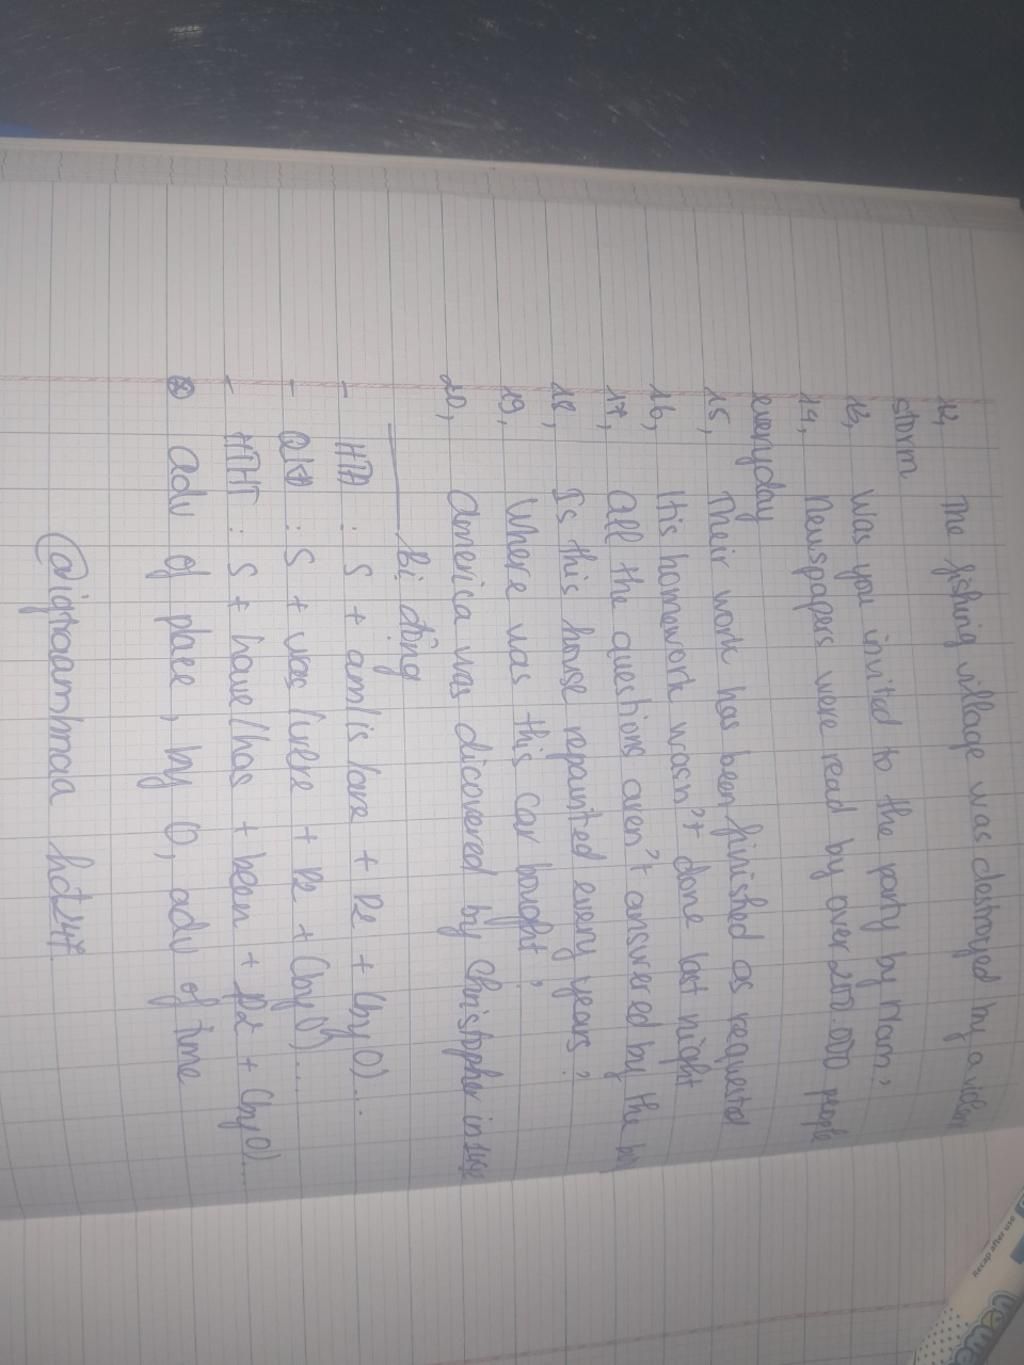 12, The fishing village was destroyed by a violent
storm
13, Was you invited to the party by Nam?
14, Newspapers were read by over 200.000 people
everyday
15, Their work has been finished as requested
16, His homework wasn't done last night
17, All the questions aren't answered by the
18, Is this house repainted every years?
19, Where was this car bought?
20, America was dicovered by Christopher in
Bị động
- HTĐ : S + am/is/are + P2 + (by O)...
- QKĐ : S + was/were + P2 + (by O)...
- HTHT : S + have/has + been + P2 + (by O)...
adv of place, by O, adv of time
hdt247
Recap after use